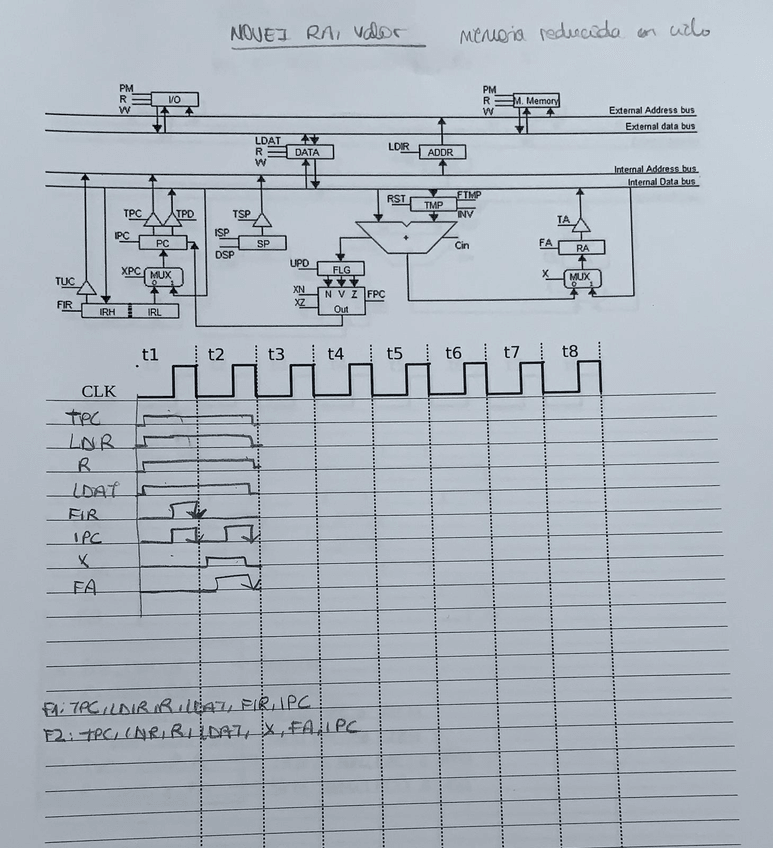 MOVEI RA, Valor Memoria reducida en ciclo
PM PM
R I/O R M. Memory
W W
External Address bus
External data bus
LDAT
R DATA LDIR ADDR
W
Internal Address bus
Internal Data bus
RST TMP FTMP
INV
TPC TPD TSP TA
IPC PC ISP SP + Cin FA RA
DSP
UPD FLG
TUC XPC MUX X MUX
0 1 0 1
XN N V Z FPC
XZ
FIR IRH IRL Out
t1 t2 t3 t4 t5 t6 t7 t8
CLK
TPC
LDIR
R
LDAT
FIR
IPC
X
FA
F1: TPC, LDIR, R, LDAT, FIR, IPC
F2: TPC, LDIR, R, LDAT, X, FA, IPC